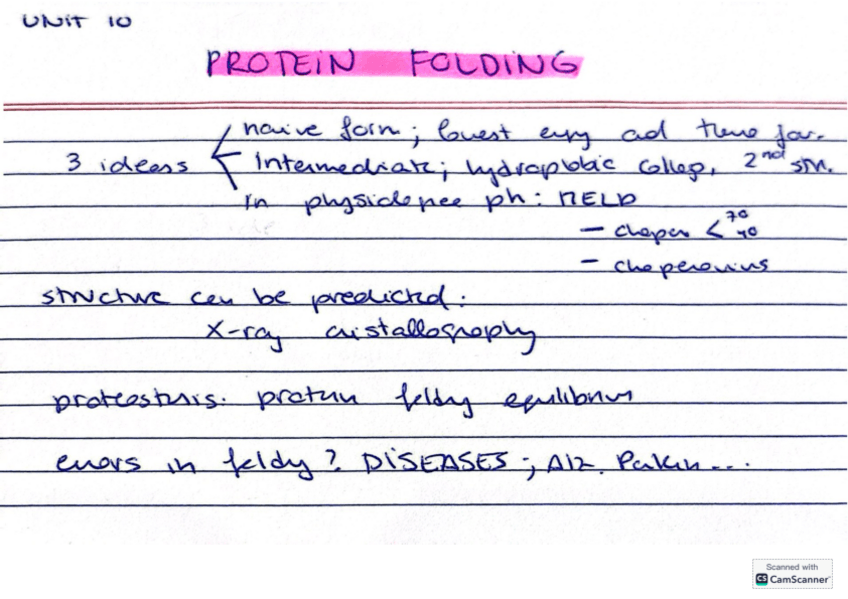 UNIT 10
PROTEIN FOLDING
naive form; lowest energy ad thermo fav.
3 ideas
Intermediate; hydrophobic collap, 2nd str.
In physiologic ph: HELP
- chaper < 70 40
- chaperonins
structure can be predicted:
X-ray cristallography
proteostasis: protein foldng equilibrium
errors in foldng? DISEASES; Alz. Parkin...
Scanned with
CS CamScanner